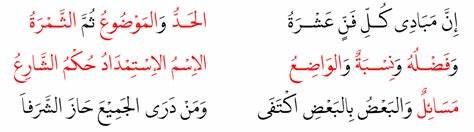 إِنَّ مَبَادِى كُلِّ فَنٍّ عَشَرَةُ الحَدُّ وَالمَوْضُوعُ ثُمَّ الثَّمْرَةُ
وَفَضْلُهُ وَنِسْبَةٌ وَالوَاضِعُ الاِسْمُ الاِسْتِمْدَادُ حُكْمُ الشَّارِعُ
مَسَائِلٌ وَالبَعْضُ بِالبَعْضِ اكْتَفَى وَمَنْ دَرَى الجَمِيْعَ حَازَ الشَّرَفَا